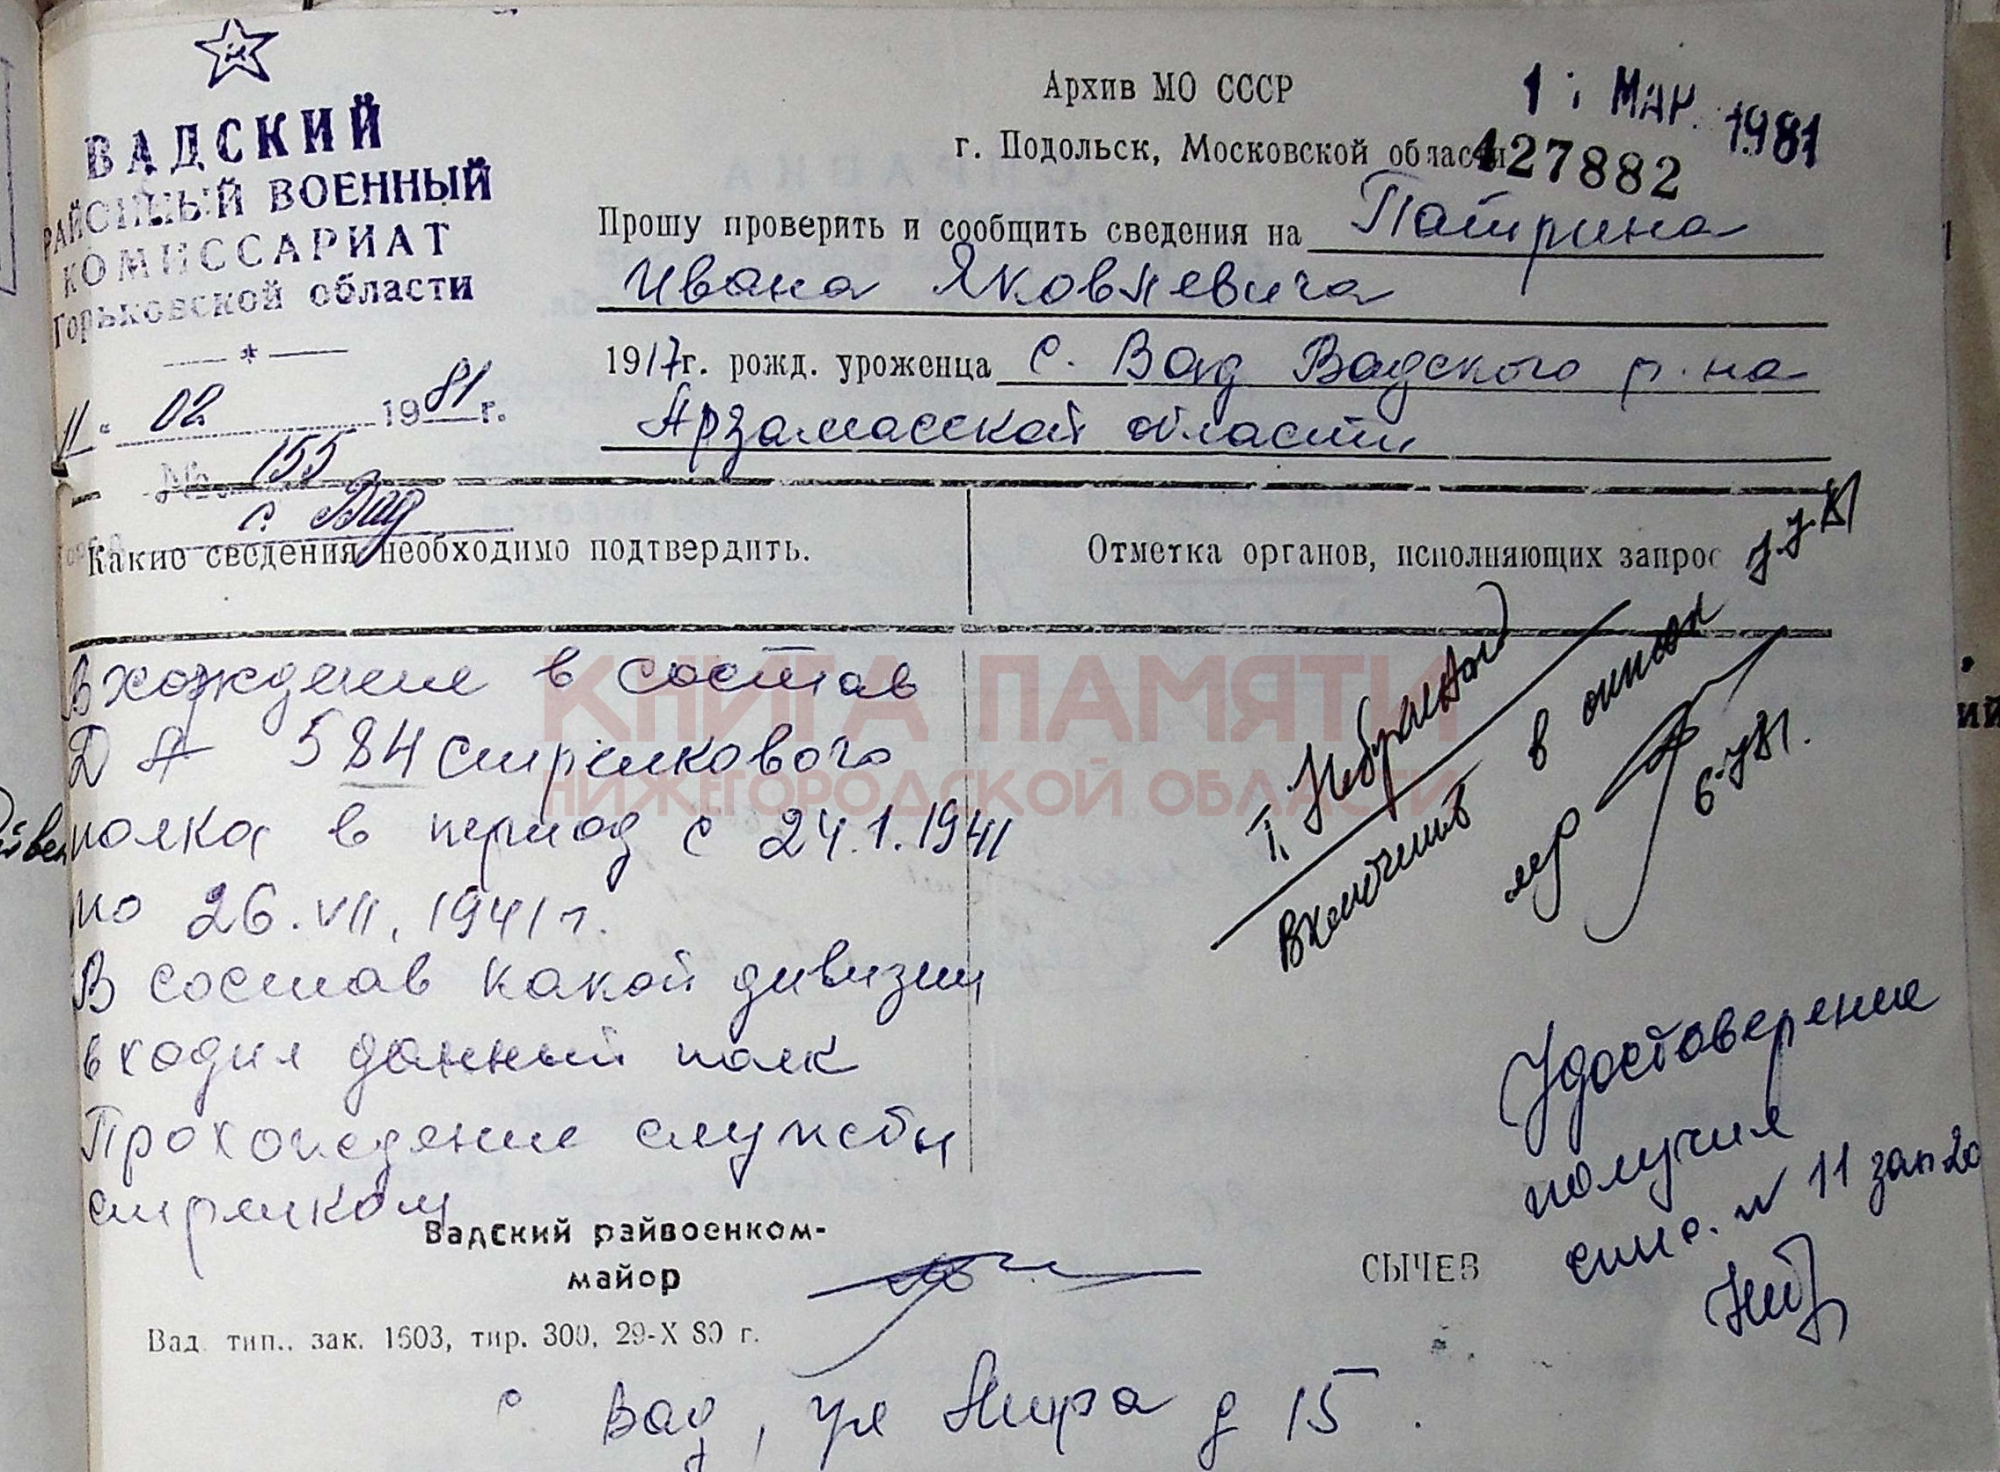 ВАДСКИЙ
РАЙОННЫЙ ВОЕННЫЙ
КОМИССАРИАТ
Горьковской области
11 " 02 1981 г.
№ 155
с. Вад
Архив МО СССР
г. Подольск, Московской области
1 МАР. 1981
427882
Прошу проверить и сообщить сведения на Патрина
Ивана Яковлевича
1917 г. рожд. уроженца с. Вад Вадского р-на
Арзамасской области
Какие сведения необходимо подтвердить.
Отметка органов, исполняющих запрос
Вхождение в состав
ДА 584 стрелкового
полка в период с 24.1.1941
по 26.VII.1941 г.
В состав какой дивизии
входил данный полк
Прохождение службы
стрелком
включить в
Удостоверение
получил
спис. № 11 зап 20
Вадский райвоенком-
майор
СЫЧЕВ
Вад. тип., зак. 1603, тир. 300, 29-X 80 г.
с Вад, ул Мира д 15.
КНИГА ПАМЯТИ
НИЖЕГОРОДСКОЙ ОБЛАСТИ